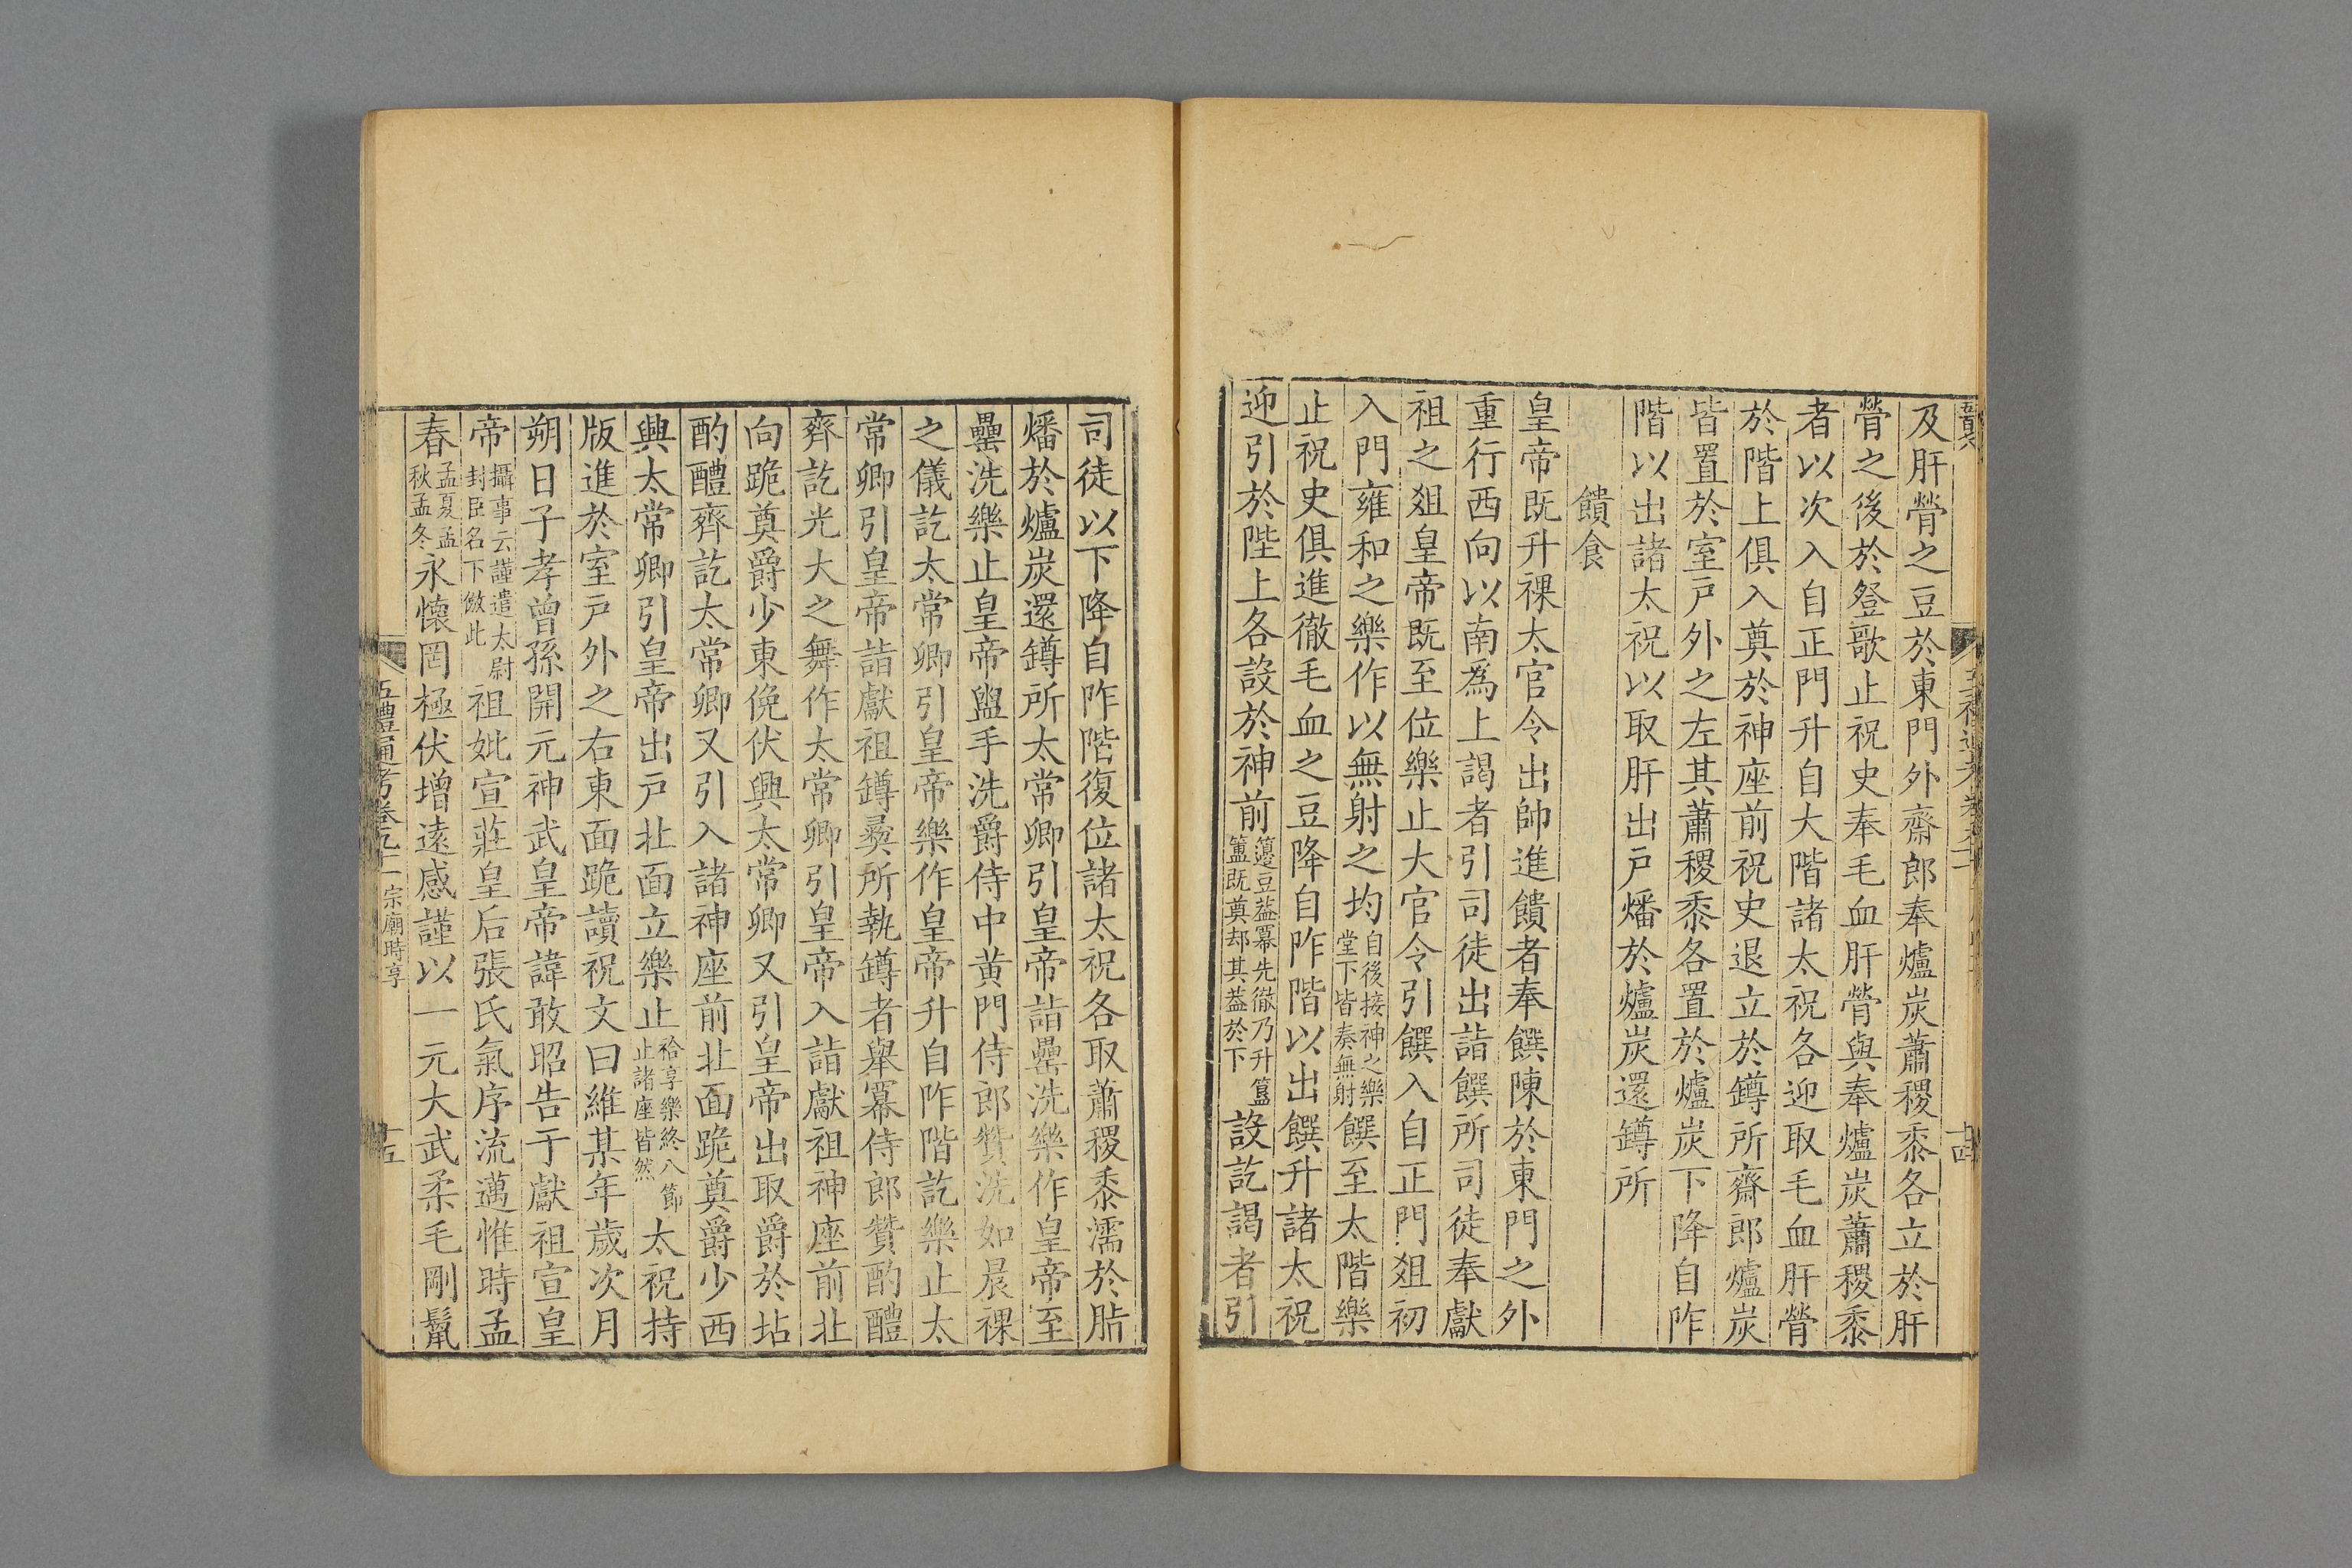 及肝膋之豆於東門外齋郎奉爐炭蕭稷黍各立於肝
膋之後於登歌止祝史奉毛血肝膋與奉爐炭蕭稷黍
者以次入自正門升自大階諸太祝各迎取毛血肝膋
於階上俱入奠於神座前祝史退立於罇所齋郎爐炭
皆置於室戸外之左其蕭稷黍各置於爐炭下降自阼
階以出諸太祝以取肝出戸燔於爐炭還罇所
饋食
皇帝既升祼太官令出帥進饋者奉饌陳於東門之外
重行西向以南為上謁者引司徒出詣饌所司徒奉獻
祖之俎皇帝既至位樂止大官令引饌入自正門俎初
入門雍和之樂作以無射之均自後接神之樂堂下皆奏無射饌至太階樂
止祝史俱進徹毛血之豆降自阼階以出饌升諸太祝
迎引於陛上各設於神前籩豆葢冪先徹乃升簋簠既奠却其葢於下設訖謁者引
司徒以下降自阼階復位諸太祝各取蕭稷黍濡於脂
燔於爐炭還罇所太常卿引皇帝詣罍洗樂作皇帝至
罍洗樂止皇帝盥手洗爵侍中黄門侍郎贊洗如晨祼
之儀訖太常卿引皇帝樂作皇帝升自阼階訖樂止太
常卿引皇帝詣獻祖罇彝所執罇者舉冪侍郎贊酌醴
齊訖光大之舞作太常卿引皇帝入詣獻祖神座前北
向跪奠爵少東俛伏興太常卿又引皇帝出取爵於坫
酌醴齊訖太常卿又引入諸神座前北面跪奠爵少西
興太常卿引皇帝出戸北面立樂止祫享樂終八節止諸座皆然太祝持
版進於室戸外之右東面跪讀祝文曰維某年歲次月
朔日子孝曾孫開元神武皇帝諱敢昭告于獻祖宣皇
帝攝事云謹遣太尉封臣名下倣此祖妣宣莊皇后張氏氣序流邁惟時孟
春孟夏孟秋孟冬永懷罔極伏增遠感謹以一元大武柔毛剛鬣
五禮通考卷九十一 宗廟時享
十五